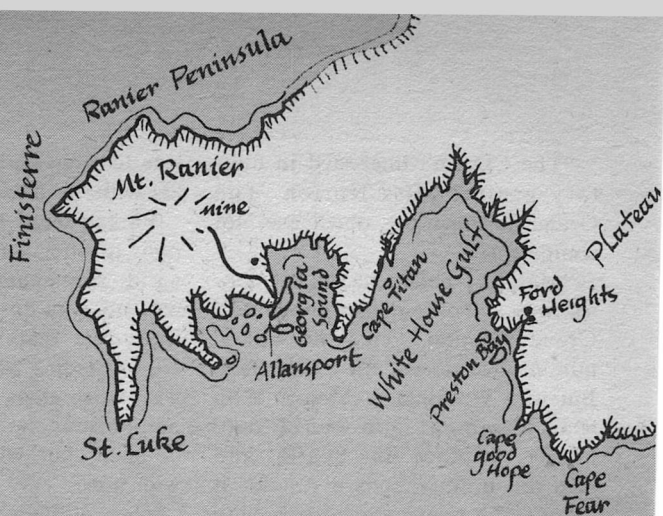 Ranier Peninsula
Finisterre
Mt. Ranier
mine
Georgia
Sound
Allansport
St. Luke
Cape Titan
White House Gulf
Preston Bay
Ford
Heights
Plateau
Cape
good
Hope
Cape
Fear